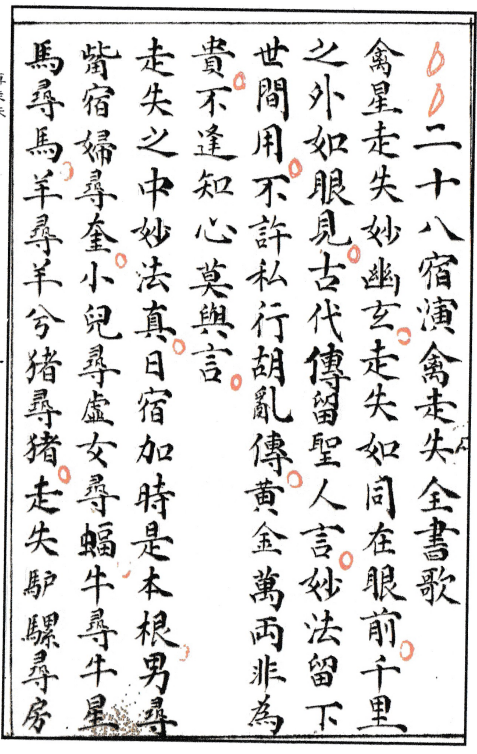 二十八宿演禽走失全書歌
禽星走失妙幽玄走失如同在眼前千里
之外如眼見古代傳留聖人言妙法留下
世間用不許私行胡亂傳黄金萬両非為
貴不逢知心莫與言
走失之中妙法真日宿加時是本根男尋
觜宿婦尋奎小兒尋虛女尋蝠牛尋牛星
馬尋馬羊尋羊兮猪尋猪走失馿騾尋房